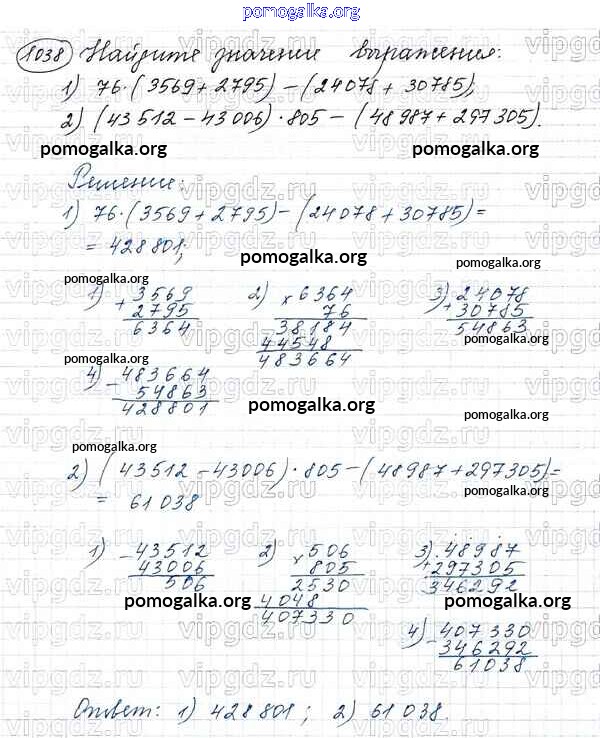 pomogalka.org
1038 Найдите значение выражения:
1) 76·(3569+2795)-(24078+30785);
2) (43512-43006)·805-(48987+297305).
pomogalka.org pomogalka.org
Решение:
1) 76·(3569+2795)-(24078+30785)=
= 428801;
pomogalka.org
pomogalka.org
1) +3569 2) ×6364 3) +24078
2795 76 30785
6364 38184 54863
44548
483664
pomogalka.org
4) -483664
54863
428801
pomogalka.org
pomogalka.org
2) (43512-43006)·805-(48987+297305)=
= 61038
pomogalka.org
1) -43512 2) ×506 3) +48987
43006 805 297305
506 2530 346292
4048
407330
pomogalka.org pomogalka.org pomogalka.org
4) -407330
346292
61038
Ответ: 1) 428801; 2) 61038.